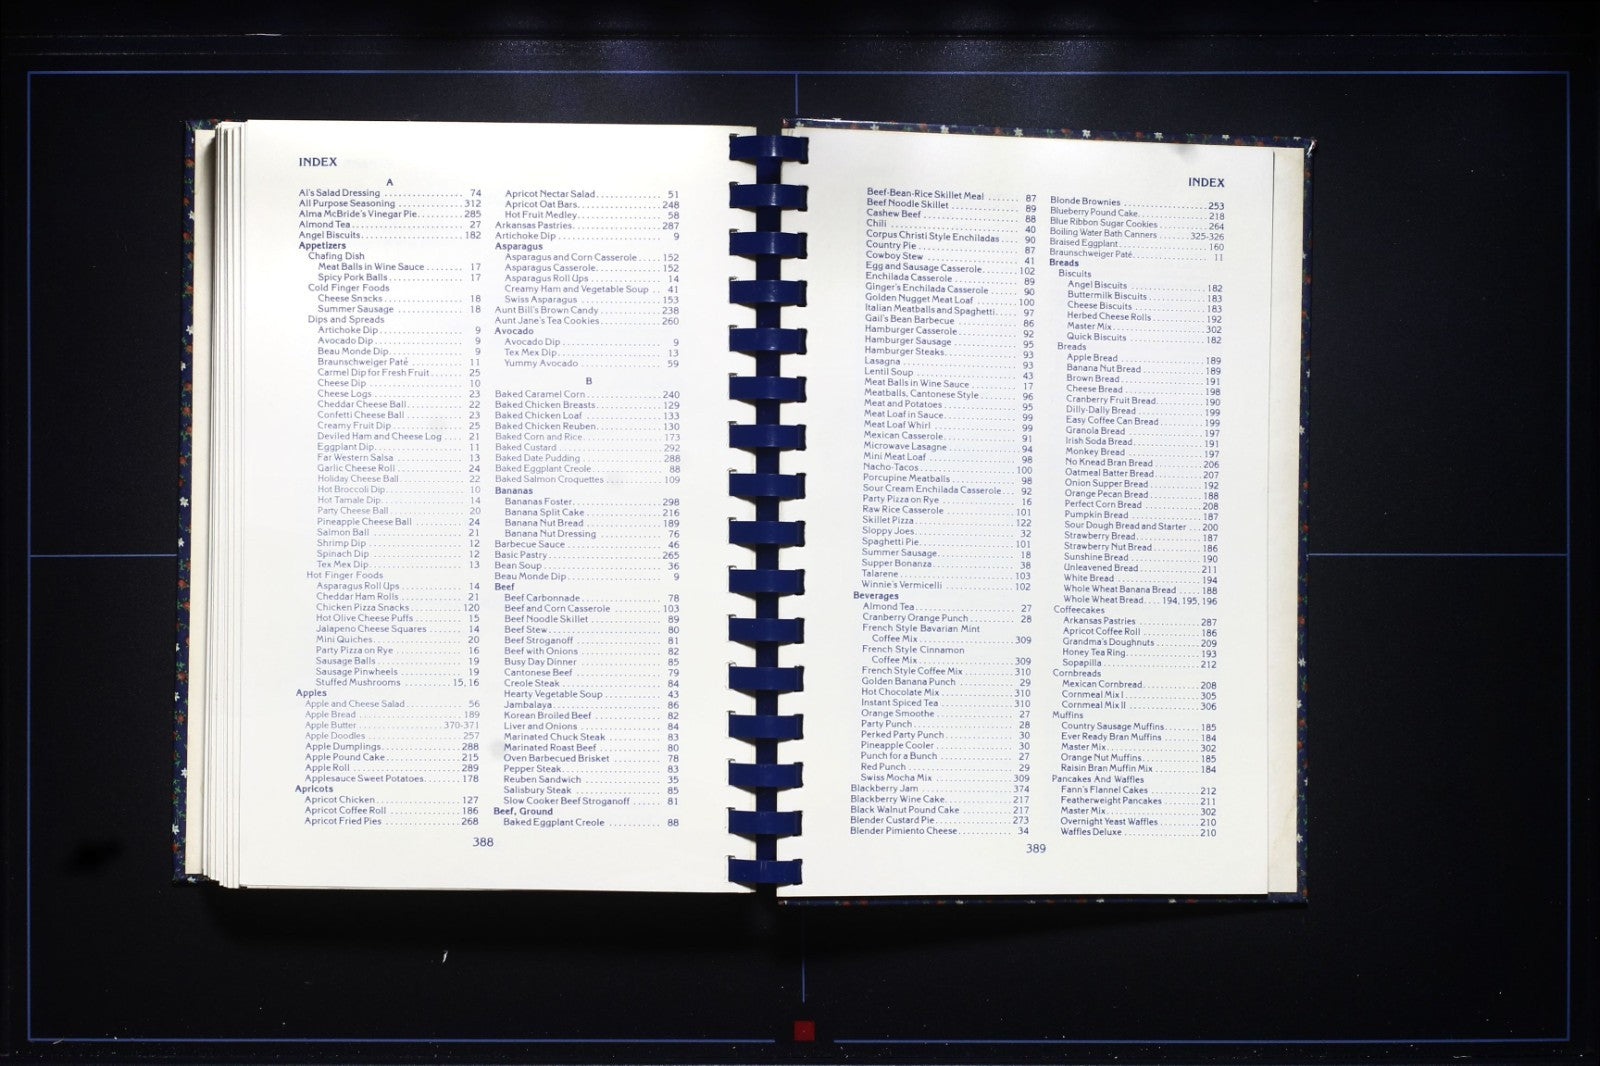 INDEX
A
Al's Salad Dressing ................ 74
All Purpose Seasoning .............. 312
Alma McBride's Vinegar Pie......... 285
Almond Tea......................... 27
Angel Biscuits..................... 182
Appetizers
Chafing Dish
Meat Balls in Wine Sauce ......... 17
Spicy Pork Balls................. 17
Cold Finger Foods
Cheese Snacks ................... 18
Summer Sausage .................. 18
Dips and Spreads
Artichoke Dip.................... 9
Avocado Dip...................... 9
Beau Monde Dip................... 9
Braunschweiger Paté .............. 11
Carmel Dip for Fresh Fruit........ 25
Cheese Dip ...................... 10
Cheese Logs ..................... 23
Cheddar Cheese Ball............... 22
Confetti Cheese Ball .............. 23
Creamy Fruit Dip ................. 25
Deviled Ham and Cheese Log .... 21
Eggplant Dip..................... 11
Far Western Salsa ................ 13
Garlic Cheese Roll ............... 24
Holiday Cheese Ball............... 22
Hot Broccoli Dip.................. 10
Hot Tamale Dip ................... 14
Party Cheese Ball ................ 20
Pineapple Cheese Ball ............ 24
Salmon Ball ..................... 21
Shrimp Dip ...................... 12
Spinach Dip ..................... 12
Tex Mex Dip...................... 13
Hot Finger Foods
Asparagus Roll Ups ............... 14
Cheddar Ham Rolls ................ 21
Chicken Pizza Snacks ............. 120
Hot Olive Cheese Puffs ........... 15
Jalapeno Cheese Squares .......... 14
Mini Quiches..................... 20
Party Pizza on Rye ............... 16
Sausage Balls ................... 19
Sausage Pinwheels ................ 19
Stuffed Mushrooms ............ 15, 16
Apples
Apple and Cheese Salad............ 56
Apple Bread ..................... 189
Apple Butter ................ 370-371
Apple Doodles ................... 257
Apple Dumplings.................. 288
Apple Pound Cake................. 215
Apple Roll ...................... 289
Applesauce Sweet Potatoes......... 178
Apricots
Apricot Chicken.................. 127
Apricot Coffee Roll .............. 186
Apricot Fried Pies ............... 268
Apricot Nectar Salad.............. 51
Apricot Oat Bars................. 248
Hot Fruit Medley................. 58
Arkansas Pastries................. 287
Artichoke Dip .................... 9
Asparagus
Asparagus and Corn Casserole ..... 152
Asparagus Casserole.............. 152
Asparagus Roll Ups ............... 14
Creamy Ham and Vegetable Soup .. 41
Swiss Asparagus .................. 153
Aunt Bill's Brown Candy ........... 238
Aunt Jane's Tea Cookies............ 260
Avocado
Avocado Dip ..................... 9
Tex Mex Dip...................... 13
Yummy Avocado ................... 59
B
Baked Caramel Corn ................ 240
Baked Chicken Breasts.............. 129
Baked Chicken Loaf ................ 133
Baked Chicken Reuben............... 130
Baked Corn and Rice................ 173
Baked Custard ..................... 292
Baked Date Pudding................. 288
Baked Eggplant Creole .............. 88
Baked Salmon Croquettes ........... 109
Bananas
Bananas Foster................... 298
Banana Split Cake ................ 216
Banana Nut Bread ................. 189
Banana Nut Dressing .............. 76
Barbecue Sauce .................... 46
Basic Pastry...................... 265
Bean Soup......................... 36
Beau Monde Dip .................... 9
Beef
Beef Carbonnade .................. 78
Beef and Corn Casserole .......... 103
Beef Noodle Skillet .............. 89
Beef Stew........................ 80
Beef Stroganoff .................. 81
Beef with Onions ................. 82
Busy Day Dinner .................. 85
Cantonese Beef ................... 79
Creole Steak ..................... 84
Hearty Vegetable Soup ............ 43
Jambalaya........................ 86
Korean Broiled Beef .............. 82
Liver and Onions ................. 84
Marinated Chuck Steak ............ 83
Marinated Roast Beef ............. 80
Oven Barbecued Brisket ........... 78
Pepper Steak..................... 83
Reuben Sandwich .................. 35
Salisbury Steak .................. 85
Slow Cooker Beef Stroganoff ...... 81
Beef, Ground
Baked Eggplant Creole ............ 88
388
INDEX
Beef-Bean-Rice Skillet Meal ....... 87
Beef Noodle Skillet .............. 89
Cashew Beef ...................... 88
Chili ............................ 40
Corpus Christi Style Enchiladas .... 90
Country Pie ...................... 87
Cowboy Stew ...................... 41
Egg and Sausage Casserole....... 102
Enchilada Casserole .............. 89
Ginger's Enchilada Casserole ..... 90
Golden Nugget Meat Loaf ......... 100
Italian Meatballs and Spaghetti.... 97
Gail's Bean Barbecue ............. 86
Hamburger Casserole.............. 92
Hamburger Sausage ............... 95
Hamburger Steaks................. 93
Lasagna .......................... 93
Lentil Soup ...................... 43
Meat Balls in Wine Sauce ......... 17
Meatballs, Cantonese Style ....... 96
Meat and Potatoes ................ 95
Meat Loaf in Sauce............... 99
Meat Loaf Whirl .................. 99
Mexican Casserole................ 91
Microwave Lasagne ............... 94
Mini Meat Loaf ................... 98
Nacho-Tacos..................... 100
Porcupine Meatballs .............. 98
Sour Cream Enchilada Casserole... 92
Party Pizza on Rye ............... 16
Raw Rice Casserole .............. 101
Skillet Pizza.................... 122
Sloppy Joes...................... 32
Spaghetti Pie................... 101
Summer Sausage................... 18
Supper Bonanza................... 38
Talarene ........................ 103
Winnie's Vermicelli ............. 102
Beverages
Almond Tea....................... 27
Cranberry Orange Punch ........... 28
French Style Bavarian Mint
Coffee Mix ..................... 309
French Style Cinnamon
Coffee Mix ..................... 309
French Style Coffee Mix ......... 310
Golden Banana Punch .............. 29
Hot Chocolate Mix ............... 310
Instant Spiced Tea .............. 310
Orange Smoothe ................... 27
Party Punch ...................... 28
Perked Party Punch ............... 30
Pineapple Cooler ................. 30
Punch for a Bunch ................ 27
Red Punch ........................ 29
Swiss Mocha Mix ................. 309
Blackberry Jam ................... 374
Blackberry Wine Cake.............. 217
Black Walnut Pound Cake .......... 217
Blender Custard Pie............... 273
Blender Pimiento Cheese............ 34
Blonde Brownies .................. 253
Blueberry Pound Cake.............. 218
Blue Ribbon Sugar Cookies ........ 264
Boiling Water Bath Canners ... 325-326
Braised Eggplant.................. 160
Braunschweiger Paté................ 11
Breads
Biscuits
Angel Biscuits .................. 182
Buttermilk Biscuits ............. 183
Cheese Biscuits ................. 183
Herbed Cheese Rolls.............. 192
Master Mix....................... 302
Quick Biscuits .................. 182
Breads
Apple Bread ..................... 189
Banana Nut Bread ................ 189
Brown Bread...................... 191
Cheese Bread .................... 198
Cranberry Fruit Bread............ 190
Dilly-Dally Bread ............... 199
Easy Coffee Can Bread ........... 199
Granola Bread ................... 197
Irish Soda Bread................. 191
Monkey Bread .................... 197
No Knead Bran Bread ............. 206
Oatmeal Batter Bread............. 207
Onion Supper Bread .............. 192
Orange Pecan Bread............... 188
Perfect Corn Bread .............. 208
Pumpkin Bread ................... 187
Sour Dough Bread and Starter ... 200
Strawberry Bread................. 187
Strawberry Nut Bread ............ 186
Sunshine Bread .................. 190
Unleavened Bread................. 211
White Bread ..................... 194
Whole Wheat Banana Bread ..... 188
Whole Wheat Bread.... 194, 195, 196
Coffeecakes
Arkansas Pastries................ 287
Apricot Coffee Roll ............. 186
Grandma's Doughnuts ............. 209
Honey Tea Ring................... 193
Sopapilla ....................... 212
Cornbreads
Mexican Cornbread................ 208
Cornmeal Mix I .................. 305
Cornmeal Mix II ................. 306
Muffins
Country Sausage Muffins.......... 185
Ever Ready Bran Muffins ......... 184
Master Mix....................... 302
Orange Nut Muffins............... 185
Raisin Bran Muffin Mix .......... 184
Pancakes And Waffles
Fann's Flannel Cakes ............ 212
Featherweight Pancakes .......... 211
Master Mix ...................... 302
Overnight Yeast Waffles ......... 210
Waffles Deluxe .................. 210
389